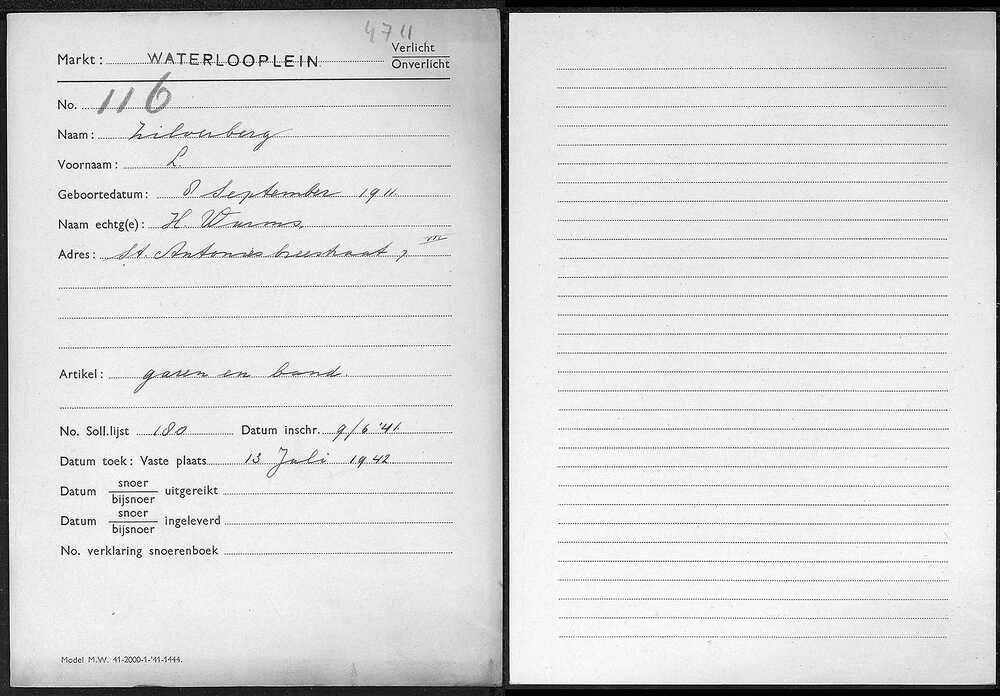 4711
Markt: WATERLOOPLEIN Verlicht
Onverlicht
No. 116
Naam: Zilverberg
Voornaam: L.
Geboortedatum: 8 September 1911
Naam echtg(e): H. Wurms.
Adres: St. Antoniesbreestraat 7 III
Artikel: garen en band.
No. Soll.lijst 180 Datum inschr. 9/6 '41
Datum toek: Vaste plaats 13 Juli 1942
Datum snoer
bijsnoer uitgereikt
Datum snoer
bijsnoer ingeleverd
No. verklaring snoerenboek
Model M.W. 41-2000-1-'41-1444.